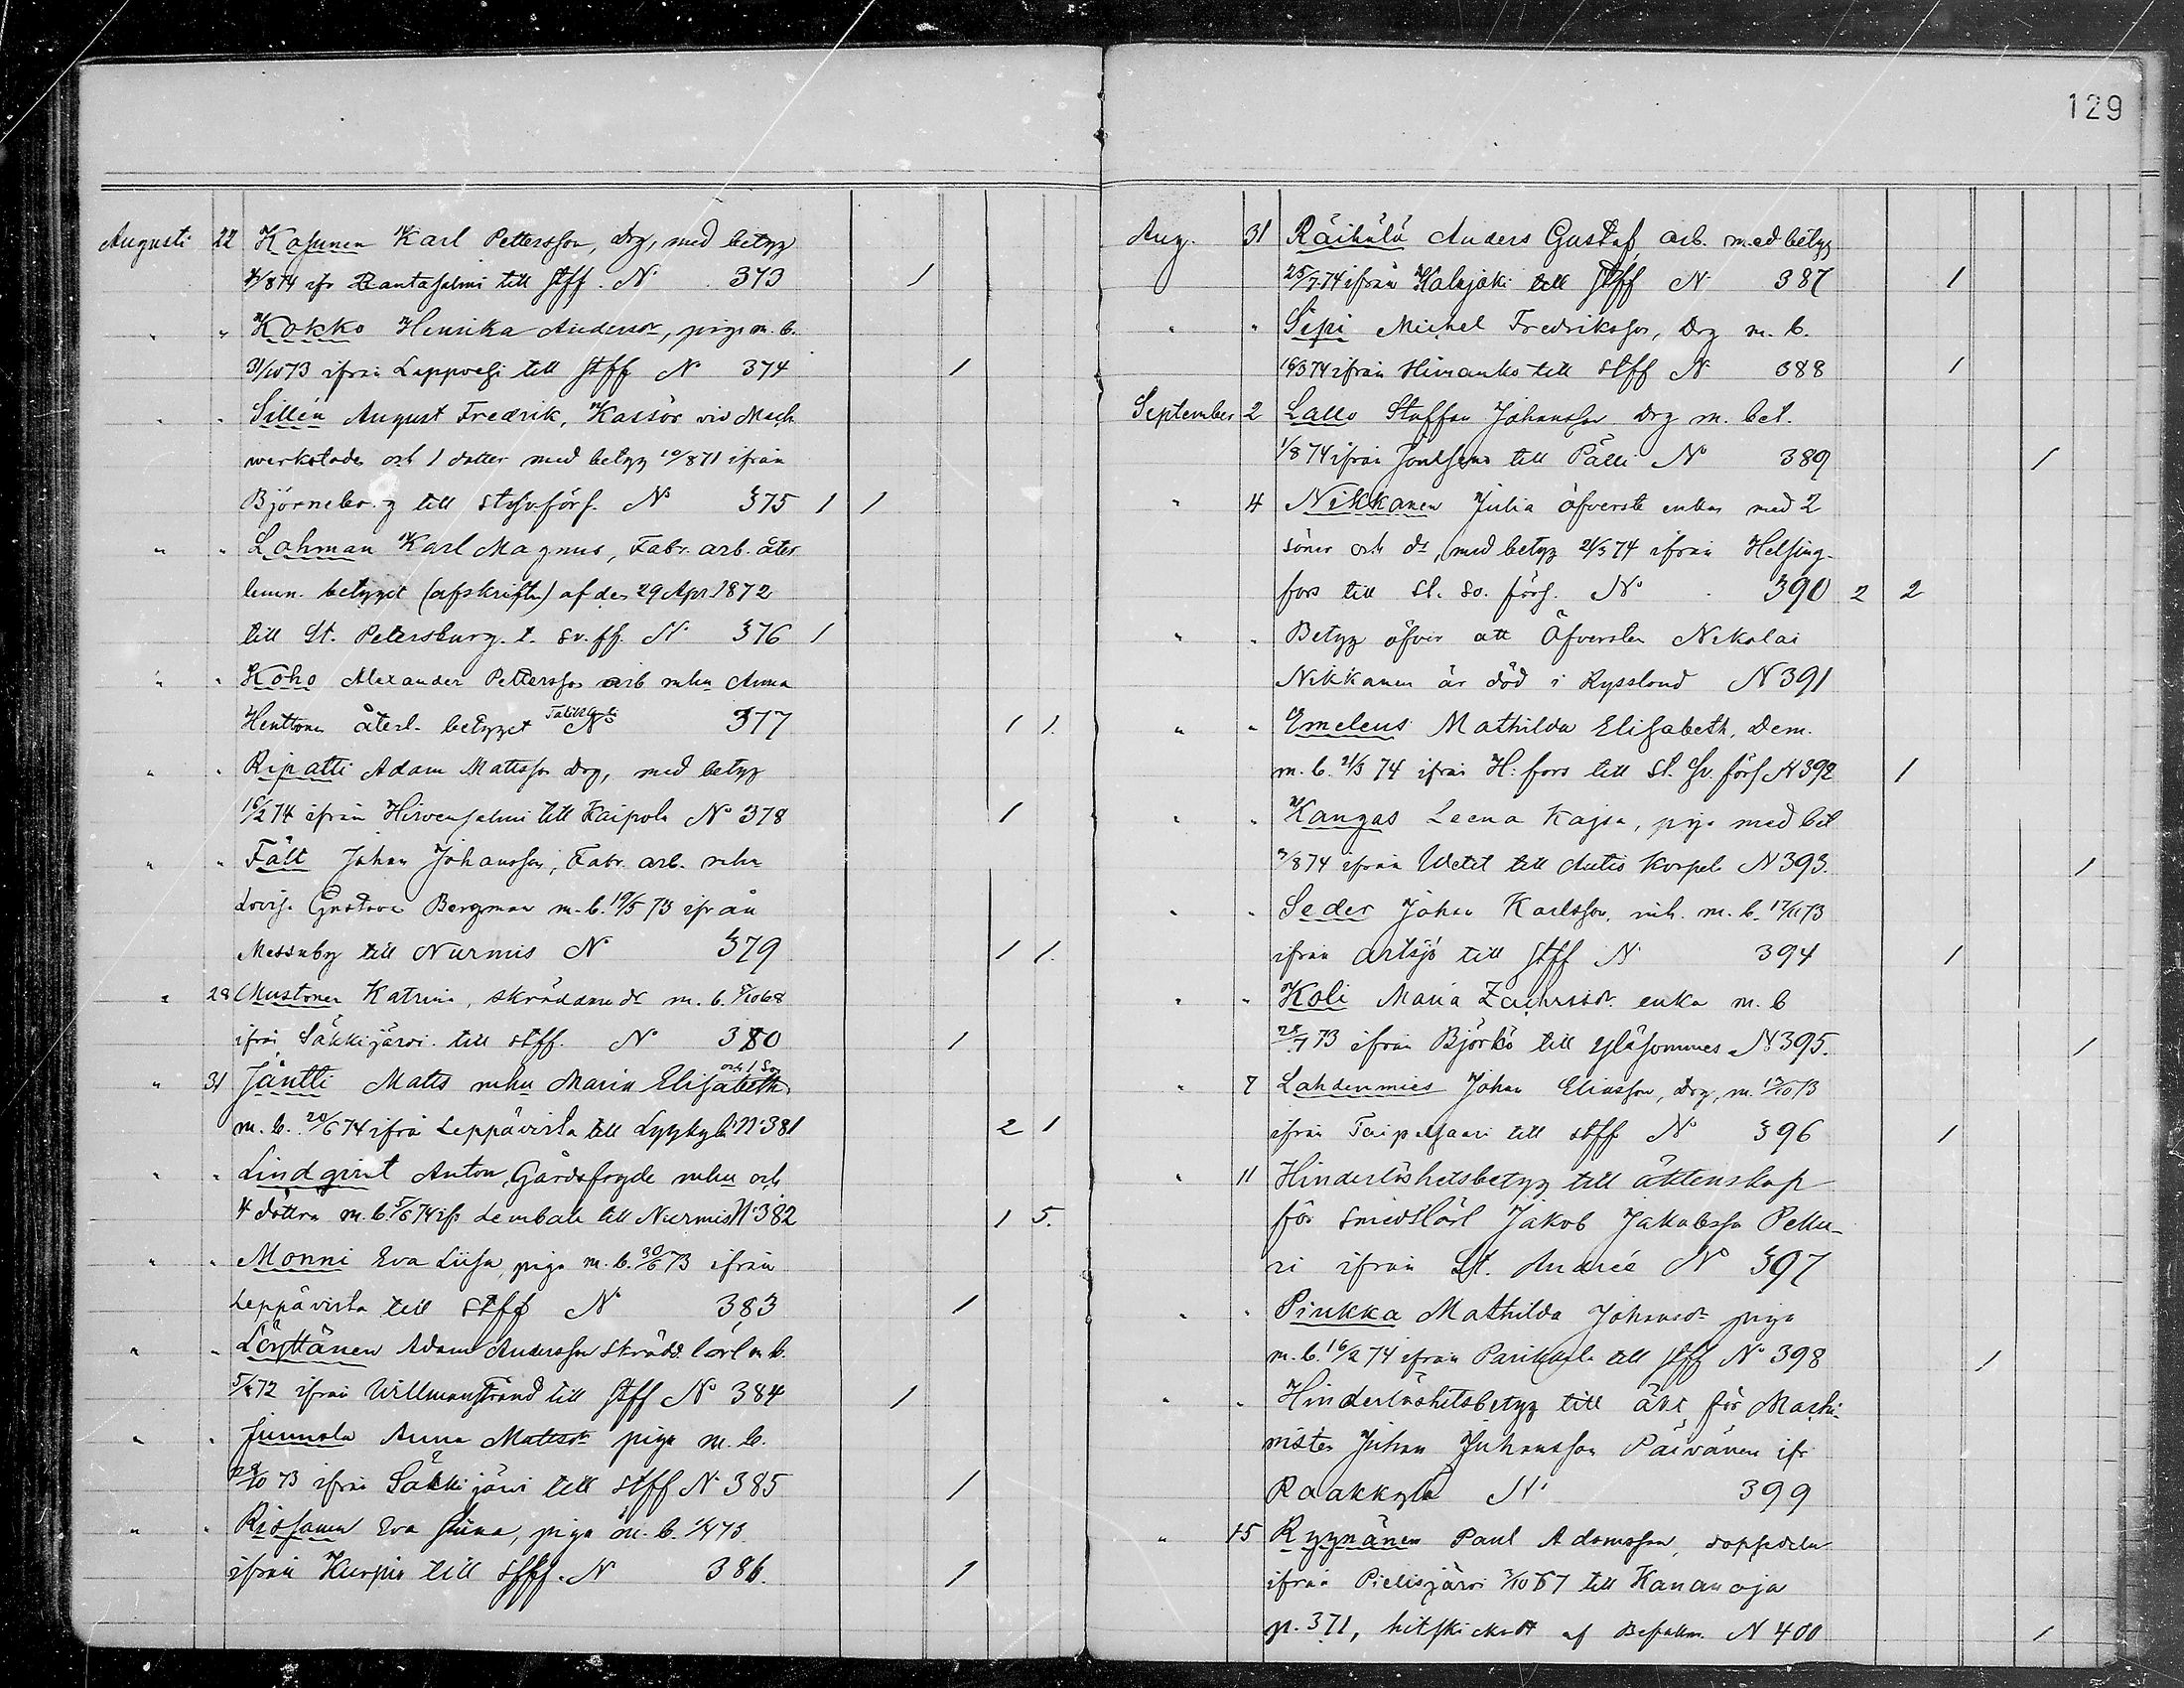 129
Augusti 22 Kasunen Karl Pettersson, Drg, med betyg
4/8 74 ifr Rantasalmi till Stff. N 373 1
" " Kokko Henrika Andersdr, piga m. b.
31/10 73 ifrån Lappvesi till Stff N 374 1
" " Sillén August Fredrik, Kassör vid Mach.
werkstaden och 1 dotter med betyg 10/8 71 ifrån
Björneborg till St. sv. förs. N 375 1 1
" " Lohman Karl Magnus, Fabr. arb. åter
lemn. betyget (afskriften) af den 29 Apr. 1872
till St. Petersburg. t. sv. ff. N 376 1
" " Koho Alexander Pettersson arb mhu Anna
Henttonen återl. betyget N 377 1 1.
" " Ripatti Adam Mattsson Drg, med betyg
16/2 74 ifrån Hirvensalmi till Kaipola No 378 1
" " Fält Johan Johansson, Fabr. arb. mhu
Lovisa Gustava Bergman m. b. 19/5 73 ifrån
Messuby till Nurmis N 379 1 1.
" 28 Mustonen Katrina, skräddare dr m. b. 8/10 68
ifrån Säkkijärvi till Stff. N 380 1
" 31 Jäntti Matts mhu Maria Elisabeth och 1 Son
m. b. 20/6 74 ifrån Leppävirta till Lyykylä N 381 2 1
" " Lindqvist Anton, Gårdsfogde mhu och
4 döttra m. b. 5/6 74 ifr Lembala till Nurmis N 382 1 5.
" " Monni Eva Liisa, piga m. b. 30/6 73 ifrån
Leppävirta till Stff N 383 1
" " Löyttänen Adam Andersson skrädd. lärl m b.
5/8 72 ifrån Willmanstrand till Stff No 384 1
" " Junnola Anna Mattsdr piga m. b.
29/10 73 ifrån Säkkijärvi till Stff N 385 1
" " Rissanen Eva Stina, piga m. b. 1/4 73
ifrån Kuopio till Stff. N 386. 1
Aug. 31 Räihälä Anders Gustaf, arb. med betyg
25/7 74 ifrån Kalajoki till Stff N 387 1
" " Sipi Michel Fredriksson, Drg m. b.
16/3 74 ifrån Himanko till Stff N 388 1
September 2 Lallo Staffan Johansson Drg m. bet.
1/8 74 ifrån Joutseno till Pälli No 389 1
" 4 Nikkanen Julia öfverste enka med 2
söner och dr, med betyg 21/3 74 ifrån Helsing-
fors till St. sv. förs. No 390 2 2
" " Betyg öfver att Öfversten Nikolai
Nikkanen är död i Ryssland N 391
" " Emeleus Mathilda Elisabeth, Dem.
m. b. 21/3 74 ifrån H:fors till St. sv. förs N 392 1
" " Kangas Leena Kajsa, piga med bet
3/8 74 ifrån Wetil till Autio Korpela N 393. 1
" " Seder Johan Karlsson, inh. m. b. 17/11 73
ifrån Artsjö till Stff N 394 1
" " Koli Maria Zachrisdr. enka m. b
28/7 73 ifrån Björkö till Yläsommes N 395. 1
" 7 Lahdenmies Johan Eliasson, Drg, m. 13/10 73
ifrån Taipalsaari till Stff N 396 1
" 11 Hinderlöshetsbetyg till äktenskap
för smedslärl Jakob Jakobsson Pettu-
ri ifrån St. Andreé No 397
" " Pirukka Mathilda Johansdr piga
m. b. 16/2 74 ifrån Parikkala till Stff No 398 1
" " Hinderlöshetsbetyg till äkt för Maski-
nisten Johan Johansson Päivänen ifr
Raakkylä N 399
" 15 Ryynänen Paul Adamsson,
ifrån Pielisjärvi 3/10 67 till Kananoja
p. 371, hitskickadt af Befallm. N 400 1